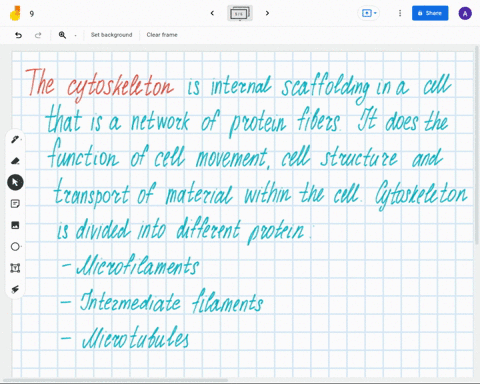 9
Share
A
Set background
Clear frame
The cytoskeleton is internal scaffolding in a cell
that is a network of protein fibers. It does the
function of cell movement, cell structure and
transport of material within the cell. Cytoskeleton
is divided into different protein:
- Microfilaments
- Intermediate filaments
- Microtubules